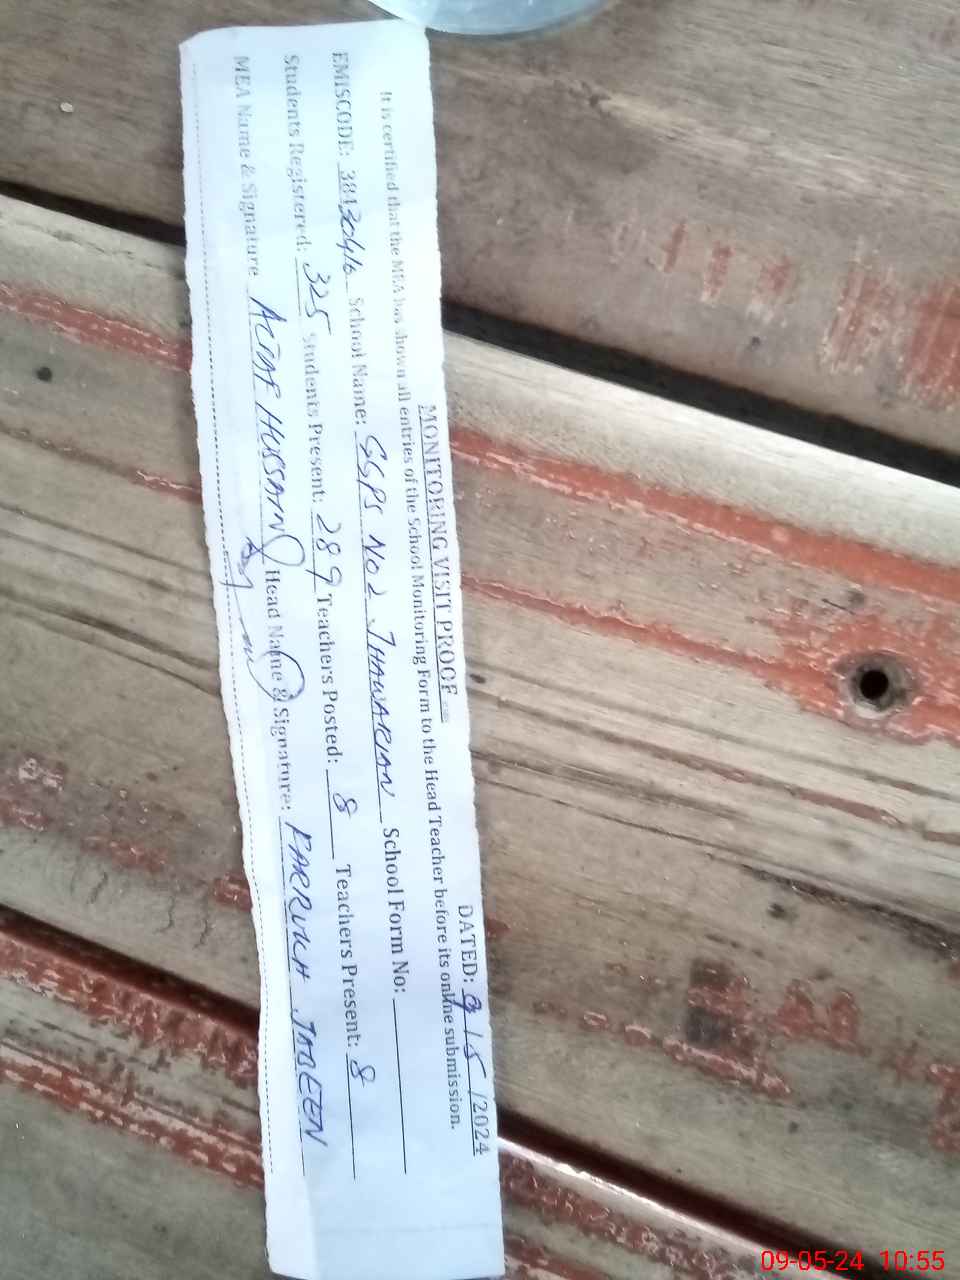 MONITORING VISIT PROOF
DATED: 9/5/2024
It is certified that the MEA has shown all entries of the School Monitoring Form to the Head Teacher before its online submission.
EMISCODE: 38430416 School Name: GGPS No 2 THAWARIAN School Form No:
Students Registered: 325 Students Present: 289 Teachers Posted: 8 Teachers Present: 8
MEA Name & Signature ALTAF HUSSAIN Head Name & Signature: FARRUCH JABEEN
09-05-24 10:55